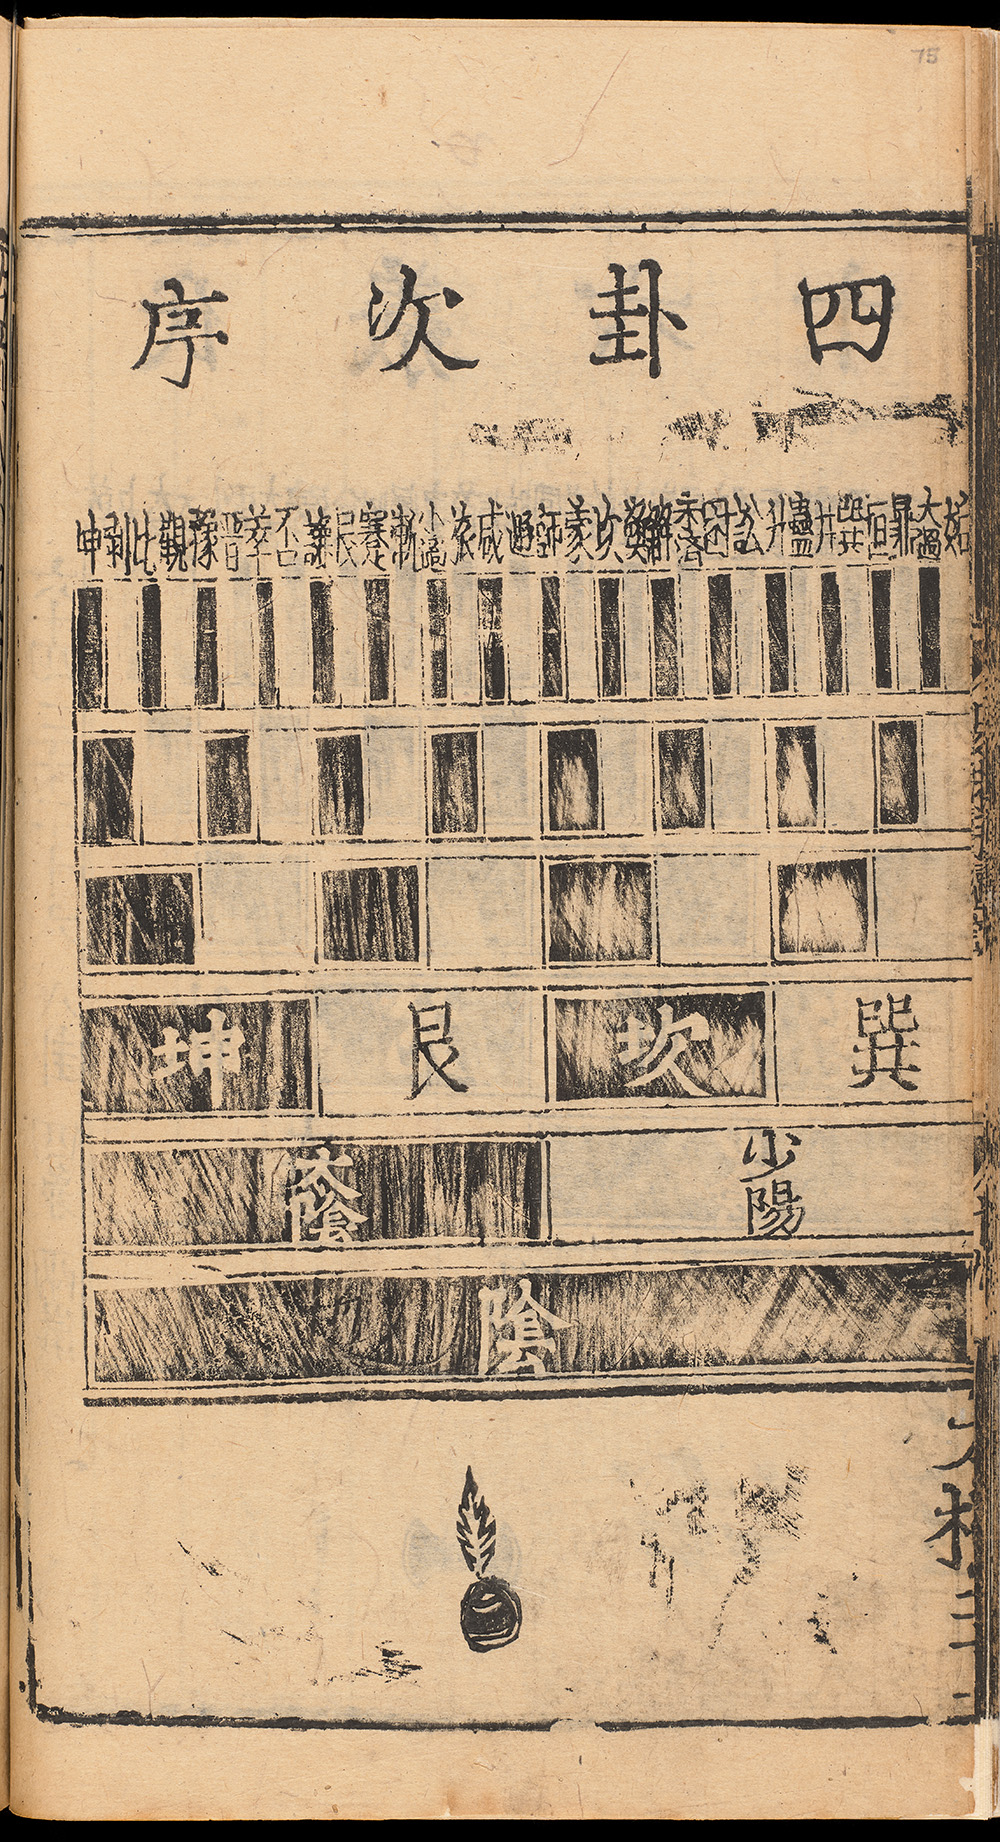 75
四卦次序
姤 大過 鼎 恒 巽 井 蠱 升 訟 困 未濟 解 渙 坎 蒙 師 遯 咸 旅 小過 漸 蹇 艮 謙 否 萃 晉 豫 觀 比 剝 坤
巽 坎 艮 坤
少陽 太陰
陰